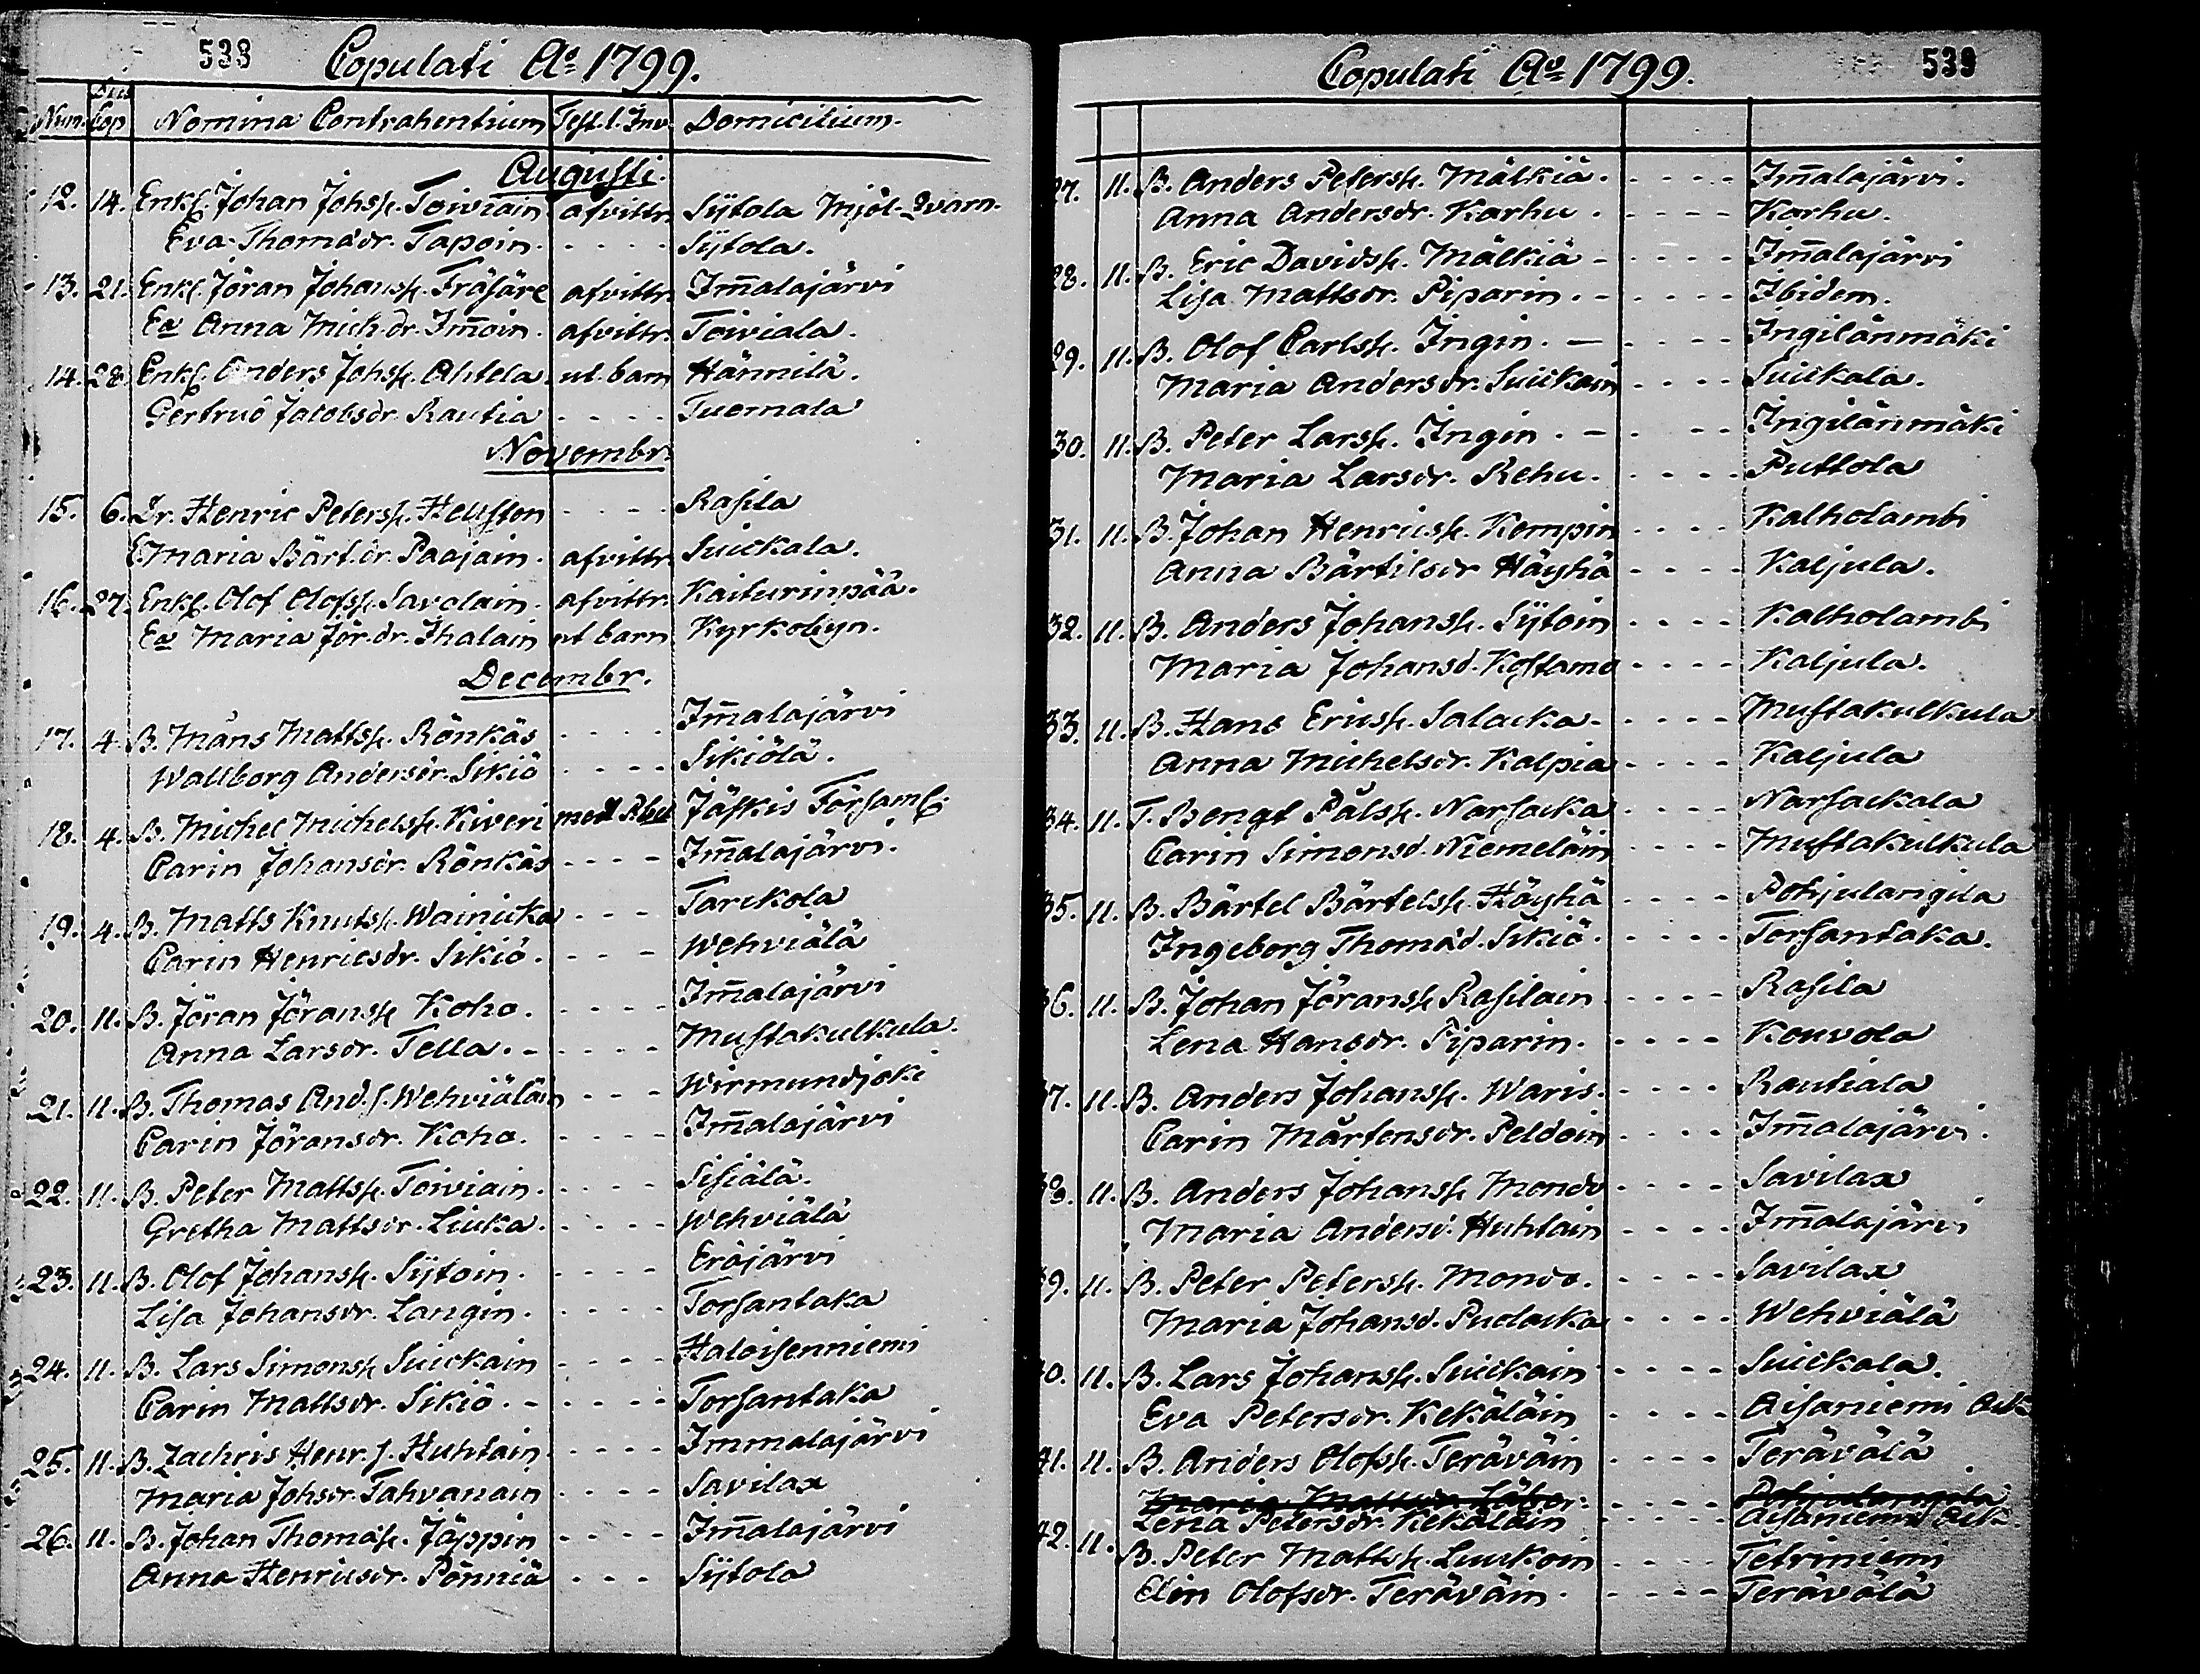 538 Copulati Ao 1799.
Num. Dies Cop. Nomina Contrahentium Test. l. Inv. Domicilium.
Augusti.
12. 14. Enkl. Johan Johss. Toiviain afvittr. Sÿtola Mjöl-Qvarn.
Eva Thomædr. Tapoin. - - - - Sÿtola.
13. 21. Enkl. Jöran Johanss. Fräsäre afvittr. Im̄alajärvi
Ea Anna Mich.dr. Im̄oin. afvittr. Toiviala.
14. 28. Enkl. Anders Johss. Ahtela ut. barn Hännilä.
Gertrud Jacobsdr. Rautia - - - - Tuomala
Novembr.
15. 6. Dr. Henric Peterss. Hellsten - - - - Rasila
E. Maria Bärt.dr. Paajain. afvittr. Suickala.
16. 27. Enkl. Olof Olofss. Savolain. afvittr. Kaiturinpää.
Ea Maria Jör.dr. Ihalain ut barn Kyrkobyn.
Decembr.
17. 4. B. Måns Mattss. Rönkäs - - - - Im̄alajärvi
Wallborg Andersdr. Sikiö - - - - Sikiölä.
18. 4. B. Michel Michelss. Kiveri med Abed Jäskis Församl.
Carin Johansdr. Rönkäs - - - - Im̄alajärvi.
19. 4. B. Matts Knutss. Wainicka - - - Tarckola
Carin Henricsdr. Sikiö. - - - Wehviälä
20. 11. B. Jöran Jöranss. Koho. - - - - Im̄alajärvi
Anna Larsdr. Tella. - - - - - Mustakulkula.
21. 11. B. Thomas And.s. Wehviäläin - - - Wirmundjoki
Carin Jöransdr. Koho. - - - - Im̄alajärvi
22. 11. B. Peter Mattss. Toiviain. - - - - Sisiälä.
Gretha Mattsdr. Liuka. - - - - Wehviälä
23. 11. B. Olof Johanss. Sÿtoin. - - - - Eräjärvi
Lisa Johansdr. Langin. - - - - Torsantaka
24. 11. B. Lars Simonss. Suickain - - - - Haloisenniemi
Carin Mattsdr. Sikiö. - - - - - Torsantaka
25. 11. B. Zachris Henr.s. Huhtain. - - - - Immalajärvi
Maria Johsdr. Tahvanain - - - - Savilax
26. 11. B. Johan Thomæs. Jäppin - - - - Im̄alajärvi
Anna Henricsdr. Pönniä - - - Sÿtola
Copulati Ao 1799. 539
27. 11. B. Anders Peterss. Mälkiä. - - - - Im̄alajärvi.
Anna Andersdr. Karhu. - - - - Karhu.
28. 11. B. Eric Davidss. Mälkiä - - - - - Im̄alajärvi
Lisa Mattsdr. Piparin. - - - - - Ibidem.
29. 11. B. Olof Carlss. Ingin. - - - - - Ingilänmäki
Maria Andersdr. Suickain - - - - Suickala.
30. 11. B. Peter Larss. Ingin. - - - - Ingilänmäki
Maria Larsdr. Rehu. - - - - Puttola
31. 11. B. Johan Henricss. Kempin - - - - Kalholambi
Anna Bärtilsdr Häyhä - - - - Kaljula.
32. 11. B. Anders Johanss. Sÿtoin - - - - Kalholambi
Maria Johansd. Kostamo - - - - Kaljula.
33. 11. B. Hans Ericss. Salacka - - - - - Mustakulkula
Anna Michelsdr. Kalpia - - - - Kaljula
34. 11. T. Bengt Pålss. Narsacka - - - - Narsackala
Carin Simonsd. Niemeläin - - - - Mustakulkula
35. 11. B. Bärtel Bärtelss. Häyhä - - - - Pohjulangila
Ingeborg Thomæd. Sikiö. - - - - Torsantaka.
36. 11. B. Johan Jöranss Rasilain - - - - Rasila
Lena Hansdr. Piparin. - - - - Kouvola
37. 11. B. Anders Johanss. Waris. - - - - Rautiala
Carin Mårtensdr. Peldoin - - - - Im̄alajärvi.
38. 11. B. Anders Johanss Mondo - - - - Savilax
Maria Andersd. Huhtain - - - - Im̄alajärvi
39. 11. B. Peter Peterss. Mondo. - - - - Savilax
Maria Johansd. Pudacka - - - - Wehviälä
40. 11. B. Lars Johanss. Suickain - - - - Suickala.
Eva Petersdr. Kekäläin - - - - Aisaniemi
41. 11. B. Anders Olofss. Teräväin - - - - Terävälä
Maria Mattsdr. - - - - Pohjulangila
Lena Petersdr. Kekäläin - - - - - Aisaniemi
42. 11. B. Peter Mattss. Luukoin - - - - Tetriniemi
Elin Olofsdr. Teräväin. - - - - Terävälä